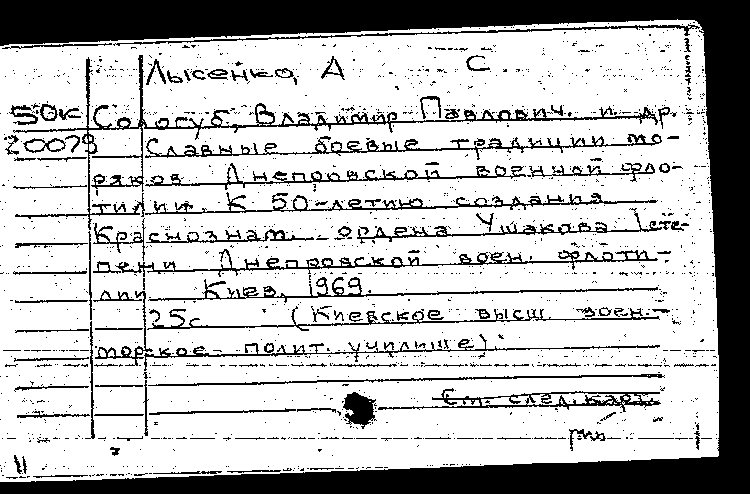 Лысенко, А С.
50к Сологуб, Владимир Павлович. и др.
20079 Славные боевые традиции мо-
ряков Днепровской военной фло-
тилии. К 50-летию создания
Краснознам. ордена Ушакова I сте-
пени Днепровской воен. флоти-
лии Киев, 1969.
25с (Киевское высш. воен.-
морское полит. училище).
См. след. карт.
11